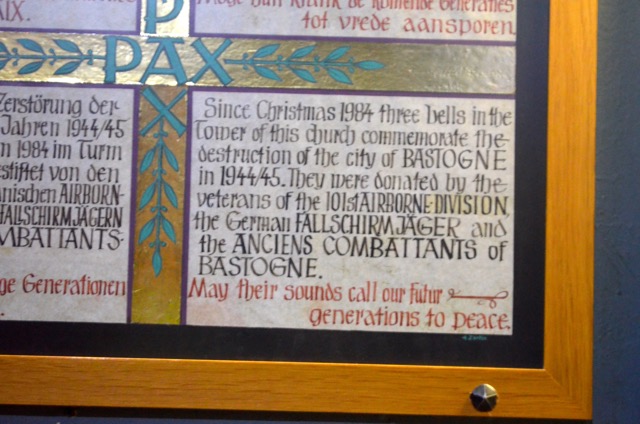 IX.
P
Moge hun klank de komende Generaties
tot vrede aansporen.
PAX
X
Zerstörung der
Jahren 1944/45
n 1984 im Turm
estiftet von den
anischen AIRBORN-
FALLSCHIRMJÄGERN
MBATTANTS.
ge Generationen
.
Since Christmas 1984 three bells in the
Tower of this church commemorate the
destruction of the city of BASTOGNE
in 1944/45. They were donated by the
veterans of the 101st AIRBORNE-DIVISION,
the German FALLSCHIRMJÄGER and
the ANCIENS COMBATTANTS of
BASTOGNE.
May their sounds call our Futur
generations to peace.